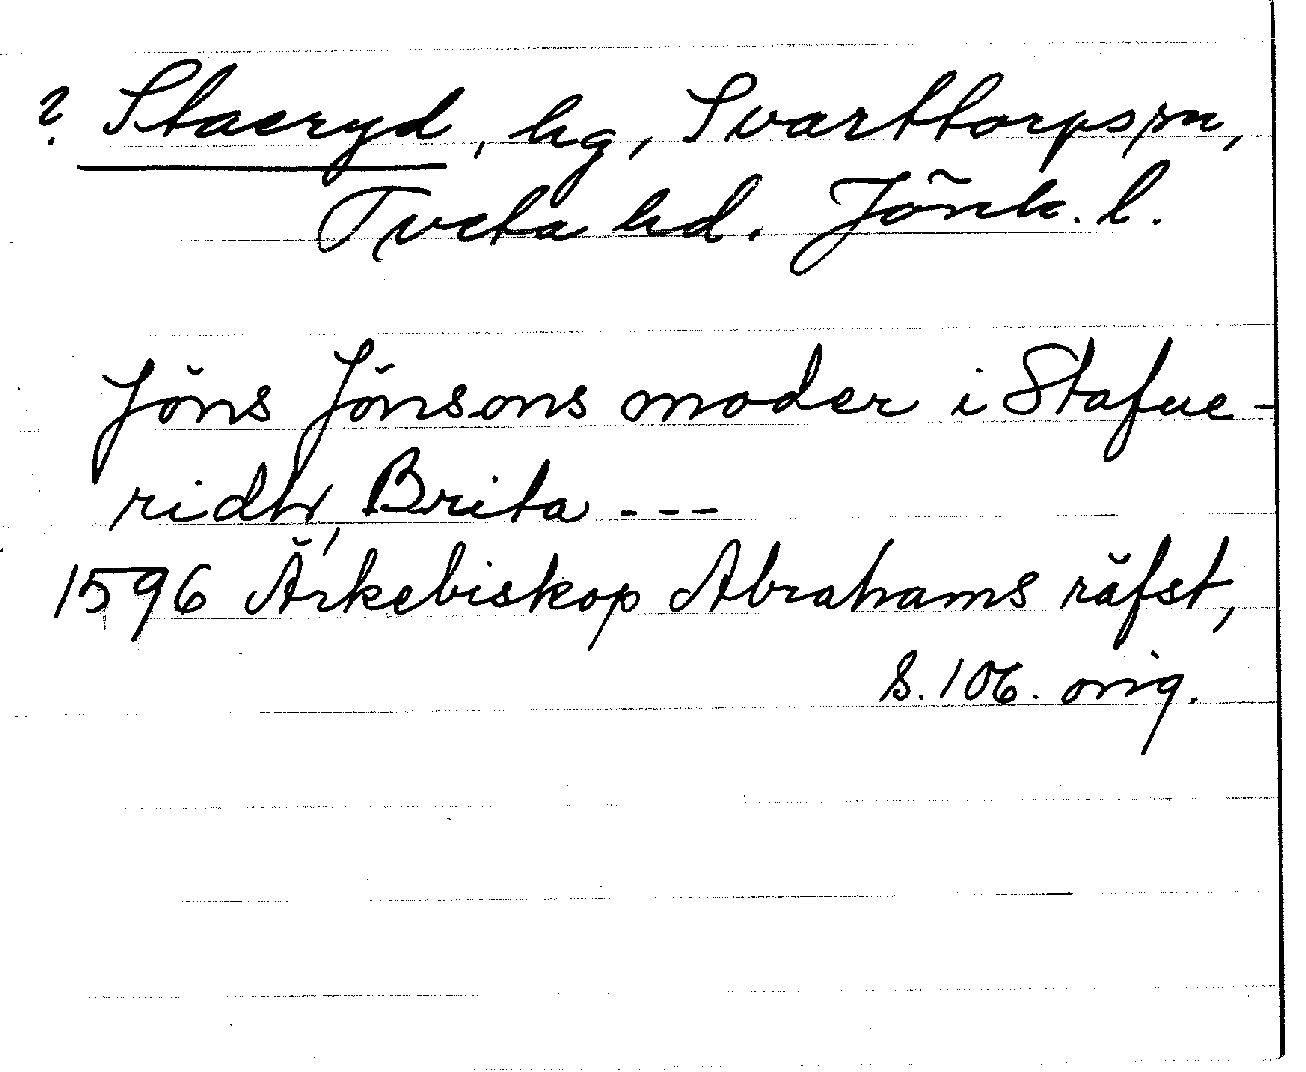 ? Staeryd, hg, Svarttorps sn,
Tveta hd. Jönk. l.
Jöns Jönsons moder i Stafue-
ridh, Brita ---
1596 Ärkebiskop Abrahams räfst,
s. 106. orig.